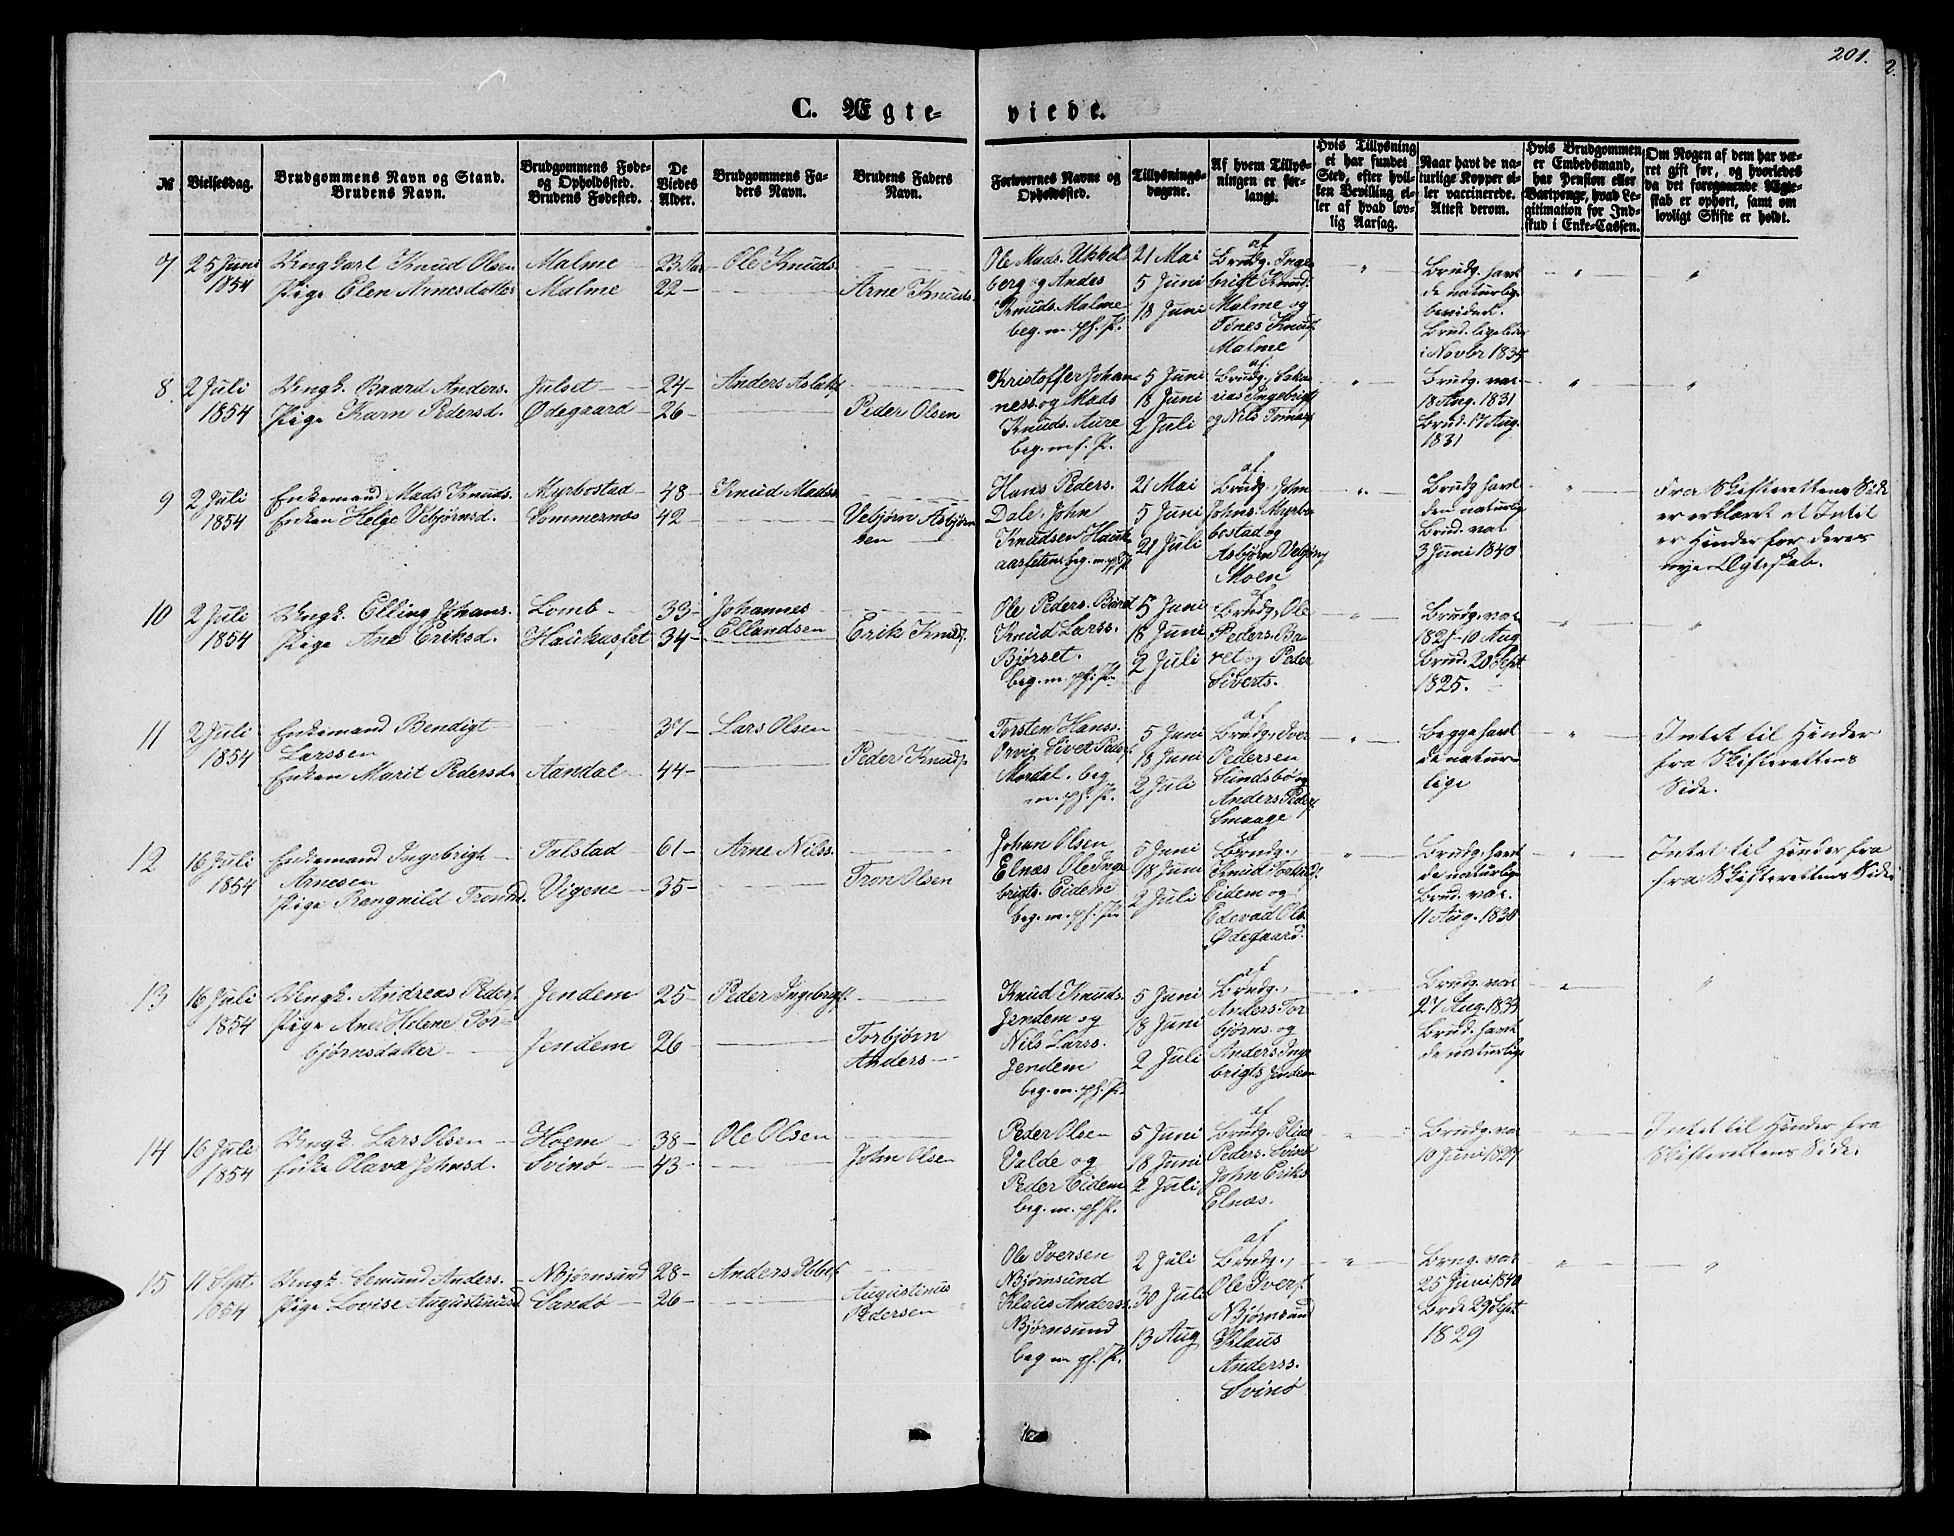 201.
C. Ægteviede.
№
Vielsesdag.
Brudgommens Navn og Stand.
Brudens Navn.
Brudgommens Føde-
og Opholdssted.
Brudens Fødested.
De
Viedes
Alder.
Brudgommens Fa-
ders Navn.
Brudens Faders
Navn.
Forlovernes Navne og
Opholdssted.
Tillysnings-
dagene.
Af hvem Tillys-
ningen er for-
langt.
Hvis Tillysning
ei har fundet
Sted, efter hvil-
ken Bevilling el-
ler af hvad lov-
lig Aarsag.
Naar havt de na-
turlige Kopper el-
ler vaccinerede.
Attest derom.
Hvis Brudgommen
er Embedsmand,
har Pension eller
Vartpenge, hvad Le-
gitimation for Ind-
skud i Enke-Cassen.
Om Nogen af dem har væ-
ret gift før, og hvorledes
da det foregaaende Ægte-
skab er ophørt, samt om
lovligt Skifte er holdt.
7
25 Juni
1854
Ungkarl Knud Olsen
Pige Elen Arnesdatter
Malme
Malme
23 Aar
22
Ole Knuds.
Arne Knuds.
Ole Mads. Ukkel
berg og Andes
Knuds. Malme
beg. m. p. f. P.
21 Mai
5 Juni
18 Juni
af
Brudg. Inge
brigt Knud.
Malme og
Tönes Knuds.
Malme
Brudg. havt
de naturlige
bevidnet.
Brud. ligeledes
i Novbr 1835
8
2 Juli
1854
Ungk. Baard Anders.
Pige Karn Pedersd.
Julset
Ødegaard
24
26
Anders Aslaks.
Peder Olsen
Kristoffer Johan
ness. og Mads
Knuds. Aure
beg. m. f. P.
5 Juni
18 Juni
2 Juli
af
Brudg., Saka
rias Ingebrigt.
og Nils Tomas.
Brudg. vac
18 Aug. 1831
Brud. 17 Aug.
1831
9
2 Juli
1854
Enkemand Mads Knuds.
Enken Helge Vebjørnsd.
Myrbostad
Sommernæs
48
42
Knud Madss.
Vebjørn Asbjørn
sen
Hans Peders.
Dale, John
Knudsen Hauk
aasfeten beg. m. p. f. P.
21 Mai
5 Juni
21 Juli
af
Brudg. John
Johns. Myrbo
bostad og
Asbjørn Vebjörns.
Moen
Brudg. havt
dem naturlig
Brud. vac
3 Juni 1840
Fra Skifterettens Side
er erklæret at Intet
er Hinder for deres
nye Ægteskab.
10
2 Juli
1854
Ungk. Elling Johans.
Pige Ane Eriksd.
Lomb
Haukaasfet
33
34
Johannes
Ellandsen
Erik Knuds.
Ole Peders. Baret
Knud Larss.
Bjørset.
beg. m. p. f. P.
5 Juni
18 Juni
2 Juli
af
Brudg., Ole
Peders. Ba
ret og Peder
Siverts.
Brudg. vac
1821 10 Aug
Brud. 20 Sept
1825.
11
2 Juli
1854
Enkemand Bendigt
Larssen
Enken Marit Pedersd.
Aandal
37
44
Lars Olsen
Peder Knuds.
Torsten Hanss.
Orvig Sivert Peders.
Mordal. beg
m. p. f. P.
5 Juni
18 Juni
2 Juli
af
Brudg., Iver
Pedersen
Sundsbø og
Anders Peders.
Smaage
Begge havt
de natur-
lige
Intet til Hinder
fra Skifterettens
Side.
12
16 Juli
1854
Enkemand Ingebrigt
Arnesen
Pige Rangnild Tronsd.
Talstad
Vigene
61
35
Arne Nilss.
Tron Olsen
Johan Olsen
Elnæs Ole Inge
brigts. Eidem
beg. m. p. f. P.
5 Juni
18 Juni
2 Juli
af
Brudg.,
Knud Torkild.
Eidem og
Edevad Ols.
Ødegaard.
Brudg. havt
de naturlige
Brud. vac.
11 Aug. 1830
Intet til Hinder fra
fra Skifterettens Side
13
16 Juli
1854
Ungk. Andreas Peders.
Pige Anes Helene Tor-
bjørnsdatter
Jendem
Jendem
25
26
Peder Ingebrigt.
Torbjørn
Anders
Knud Knuds.
Jendem og
Nils Larss.
Jendem
beg. m. p. f. P.
5 Juni
18 Juni
2 Juli
af
Brudg.,
Anders Tor
bjørns. og
Anders Inge
brigts Jendem
Brudg. vac
27 Aug. 1833
Brud. havt
de naturlige
14
16 Juli
1854
Ungk. Lars Olsen
Enke Olava Johnsd.
Hoem
Svinø
38
43
Ole Olsen
John Olsen
Peder Olsen
Valde og
Peder Eidem
beg. m. p. f. P.
5 Juni
18 Juni
2 Juli
af
Brudg. Elias
Peders. Svinø
John Eriks
Elnæs.
Brudg. vac
10 Juni 1827
Intet til Hinder fra
Skifterettens Side.
15
11 Sept.
1854
Ungk. Semund Anders.
Pige Lovise Augustinusd
Bjørnsund
Sandø
28
26
Anders
Augustinus
Pedersen
Ole Iversen
Bjørnsund
Klaus Anderss.
Bjørnsund
beg m p. f. P.
2 Juli
30 Juli
13 Aug
af
Brudg.,
Ole Ivers.
Bjørnsund
Klaus
Anderss.
Svinø
Brug. vac
25 Juni 1840
Brde 29 Sept
1829